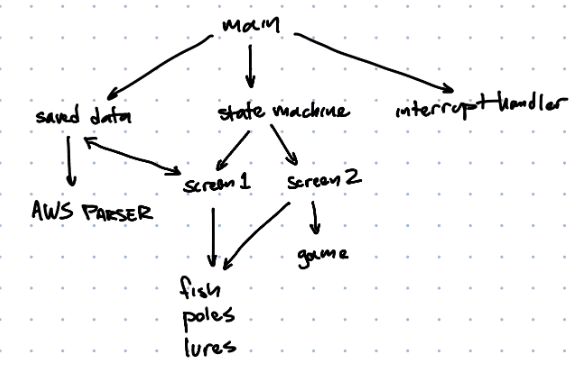 main
saved data
state machine
interrupt handler
screen 1
screen 2
AWS PARSER
game
fish
poles
lures